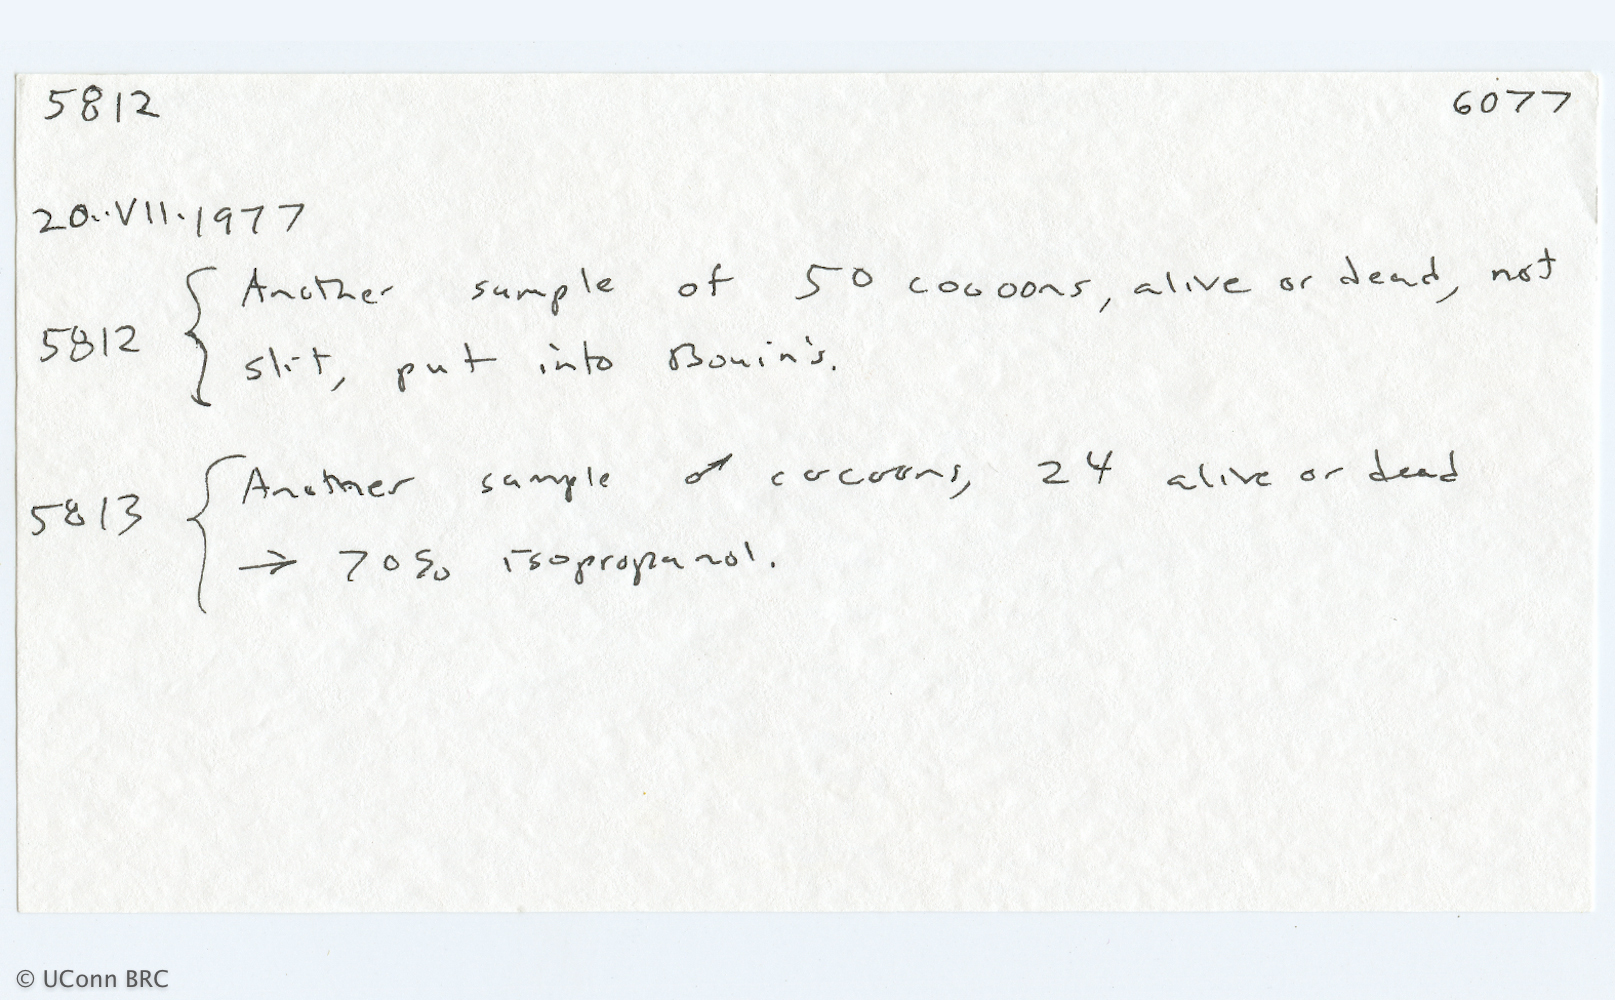 5812 6077
20.VII.1977
5812 { Another sample of 50 cocoons, alive or dead, not
slit, put into Bouin's.
5813 { Another sample of cocoons, 24 alive or dead
→ 70% isopropanol.
© UConn BRC